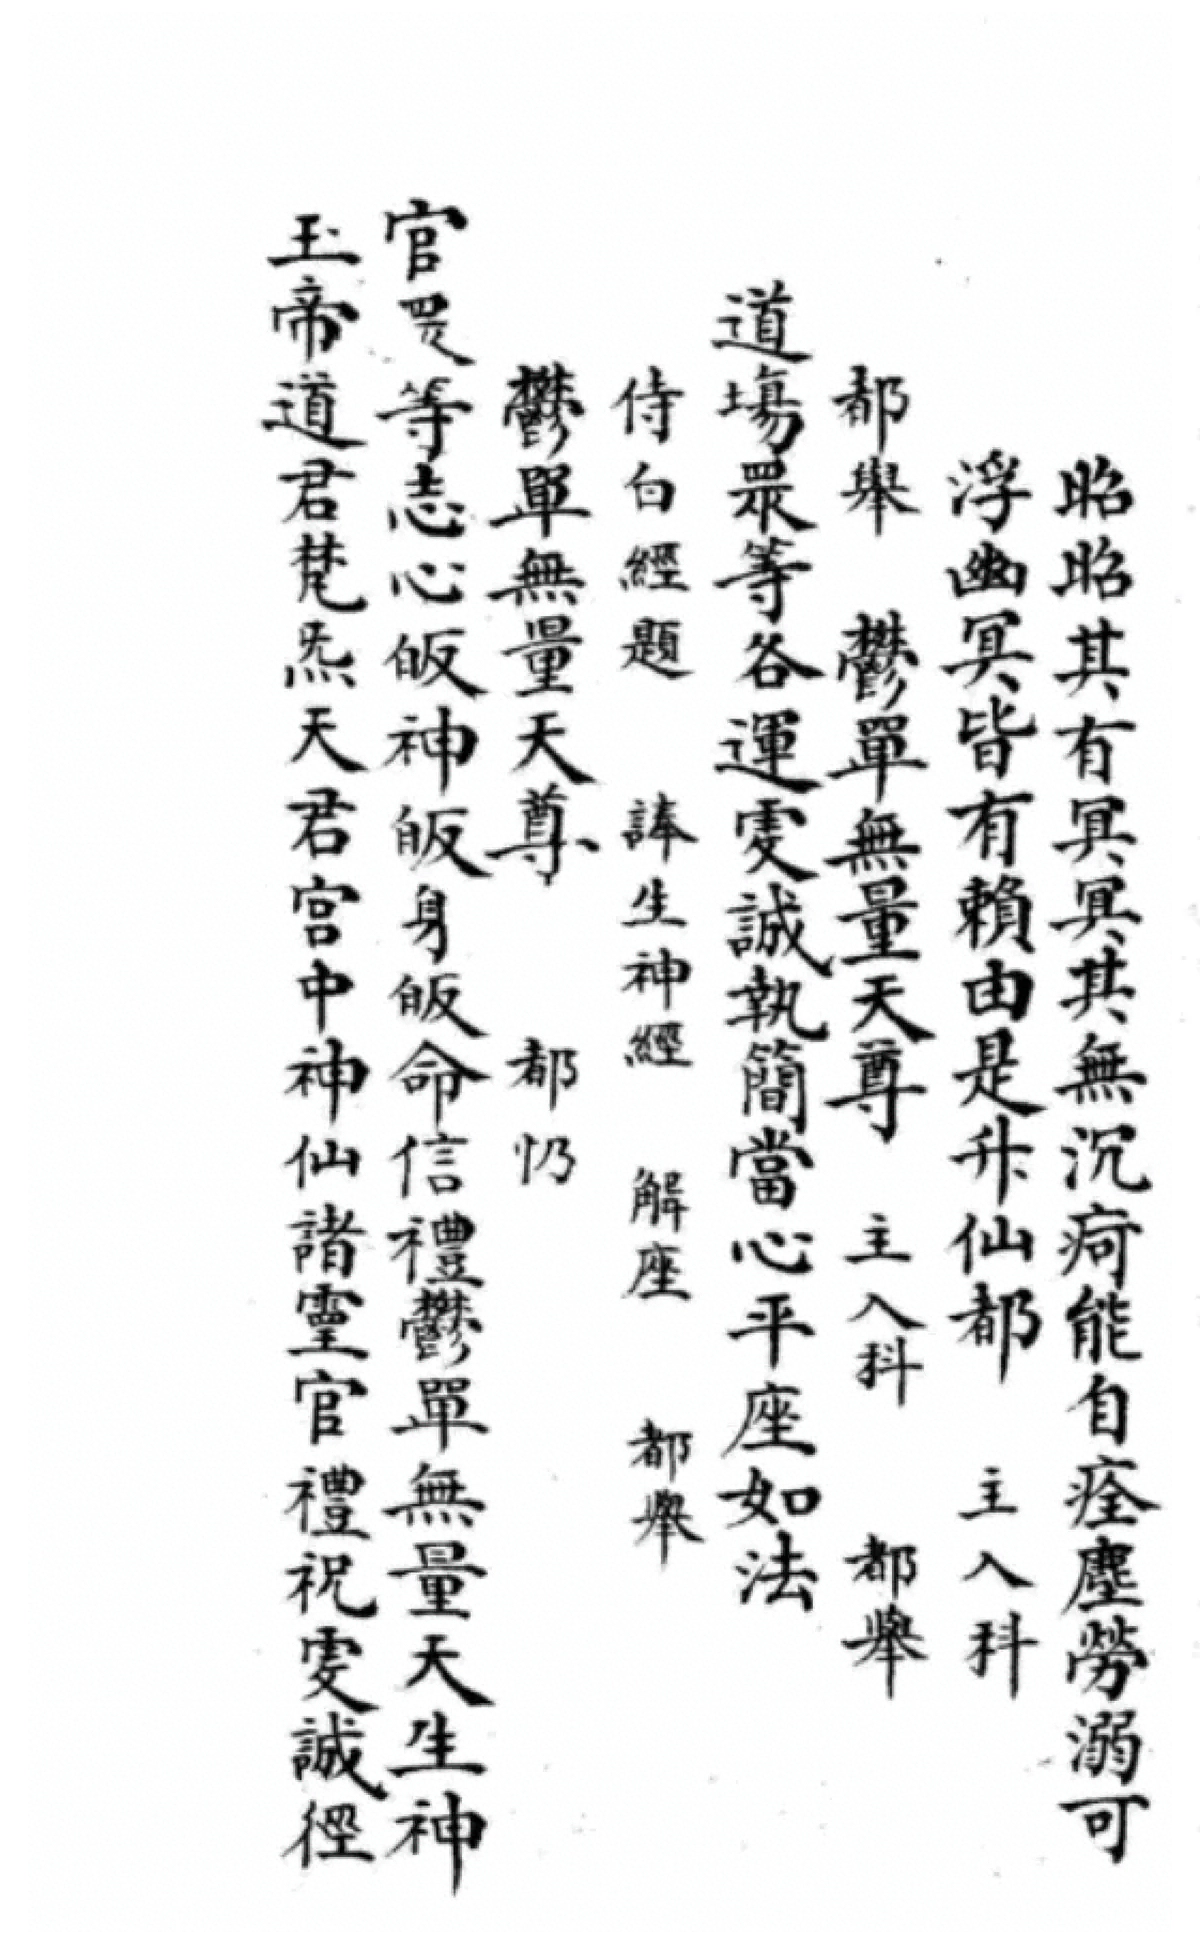 昭昭其有冥冥其無沉疴能自痊塵勞溺可
浮幽冥皆有賴由是升仙都 主入科
都舉 鬱單無量天尊 主入科 都舉
道場眾等各運虔誠執簡當心平座如法
侍白經題 諱生神經 解座 都舉
鬱單無量天尊 都忉
官眾等志心皈神皈身皈命信禮鬱單無量天生神
玉帝道君梵炁天君宮中神仙諸靈官禮祝虔誠徑